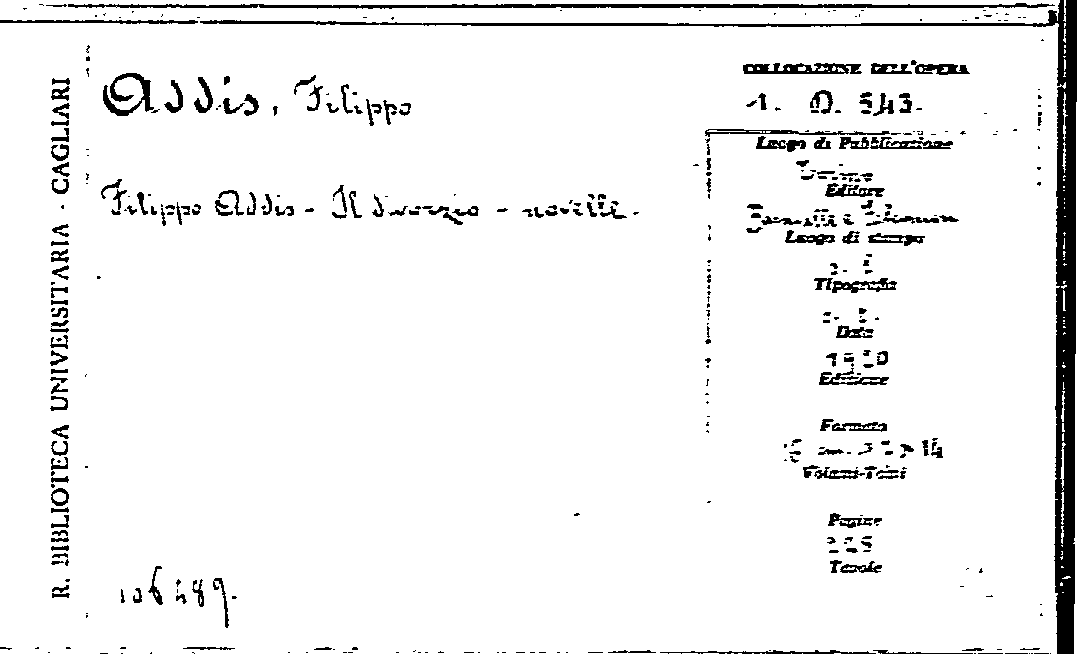 R. BIBLIOTECA UNIVERSITARIA - CAGLIARI
Addis, Filippo
Filippo Addis - Il divorzio - novelle.
106489.
COLLOCAZIONE DELL'OPERA
1. D. 543.
Luogo di Pubblicazione
Editore
Luogo di stampa
Tipografia
Data
1920
Edizione
Formato
Volumi-Tomi
Pagine
Tavole